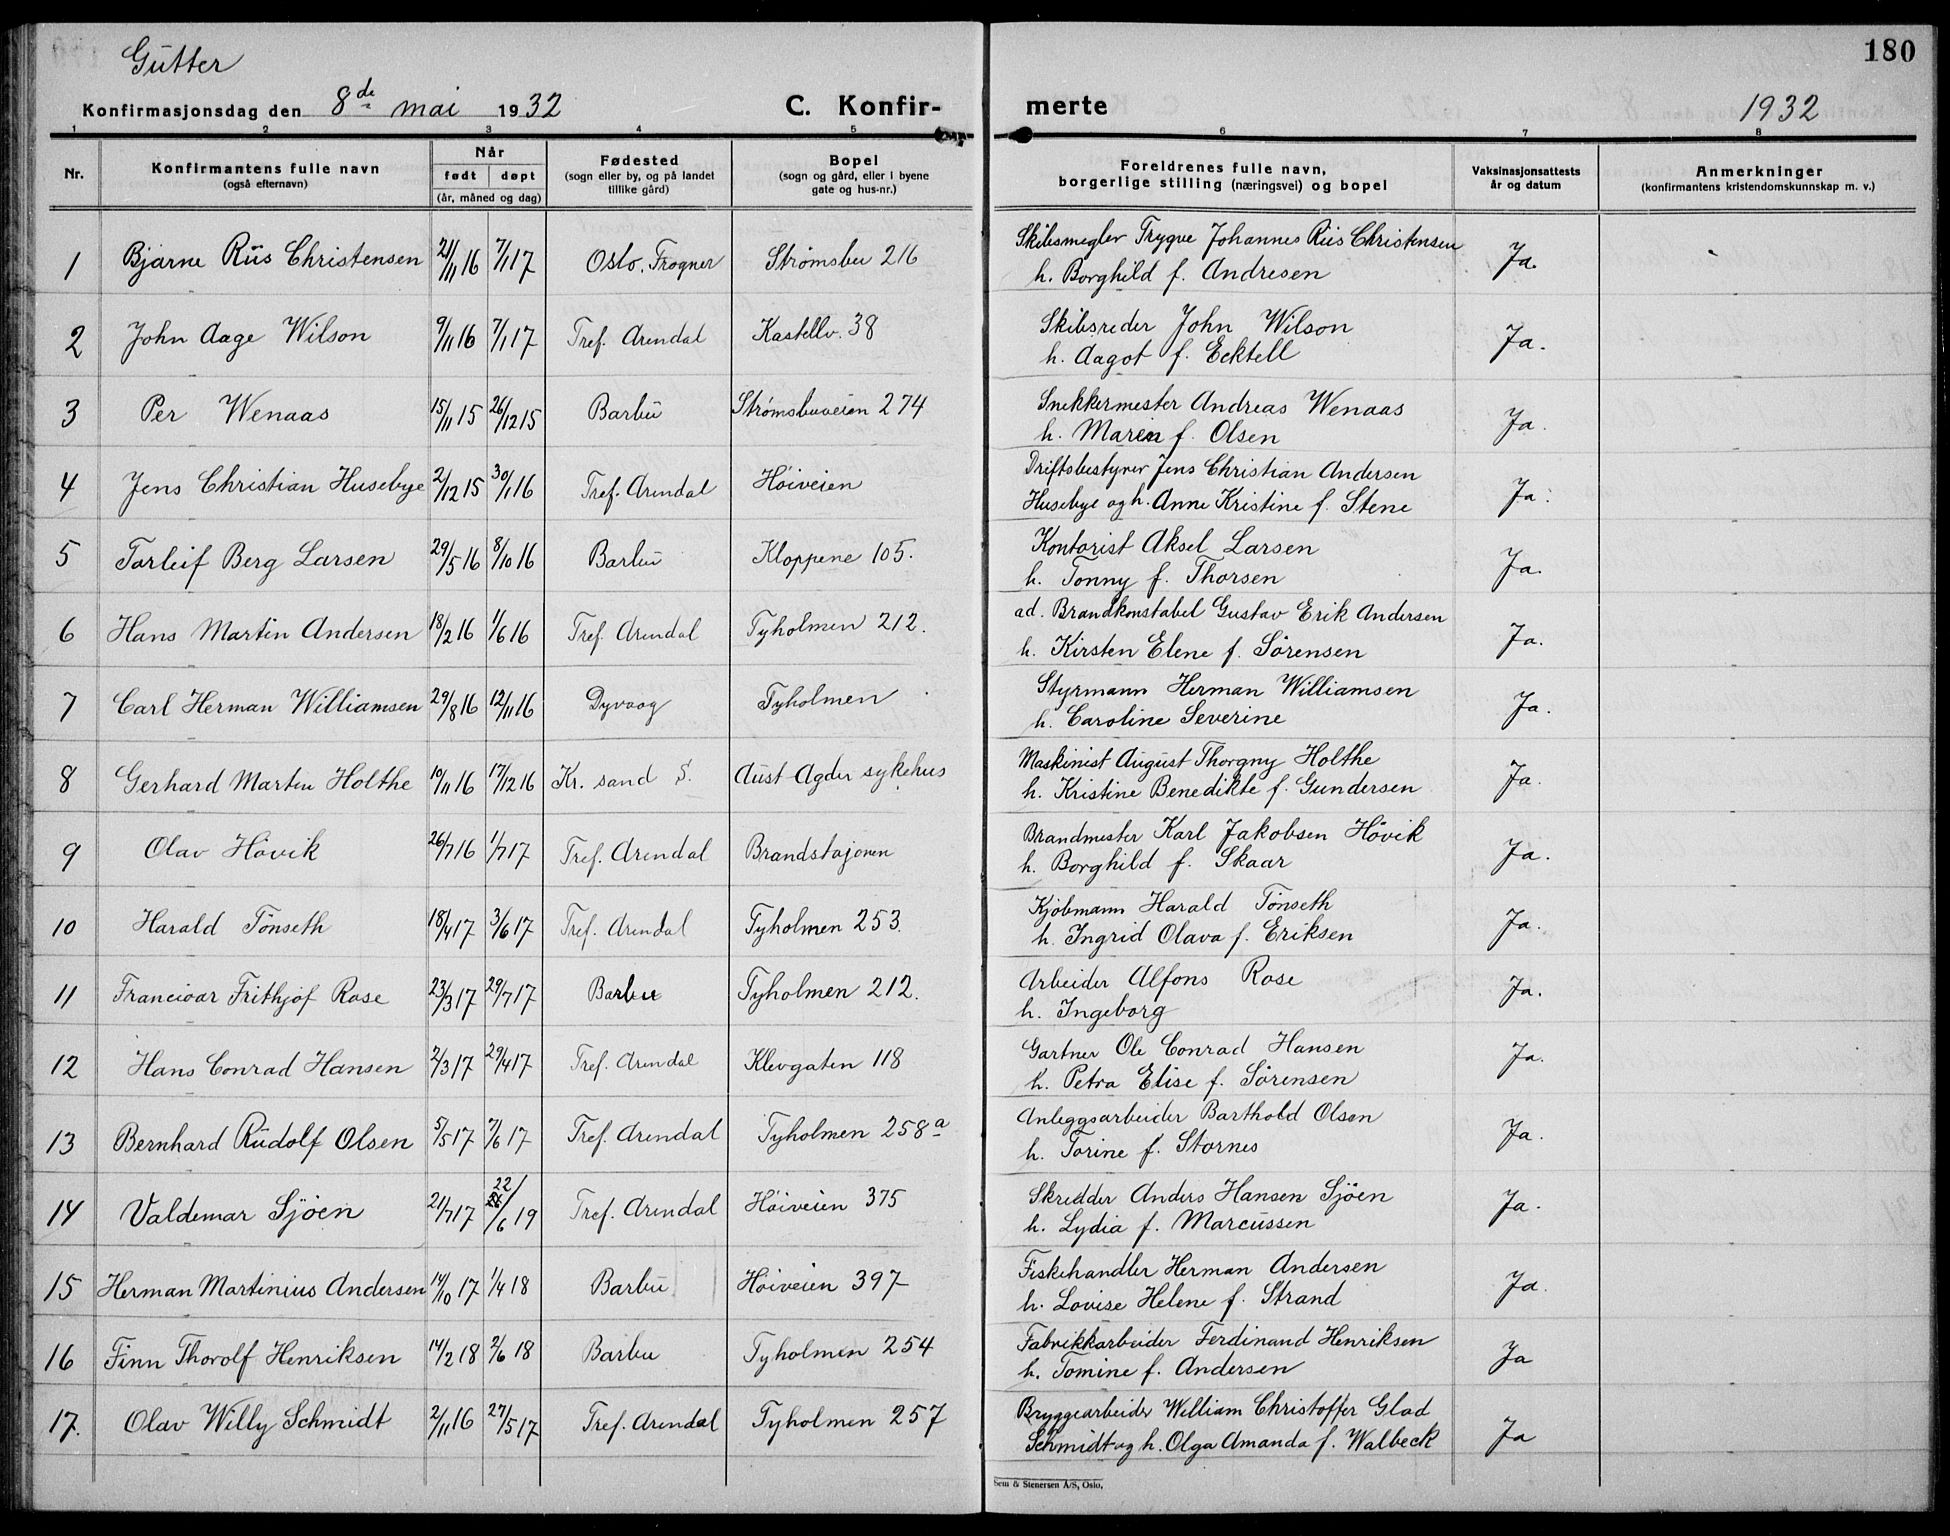 Gutter
180
Konfirmasjonsdag den 8de mai 1932 C. Konfirmerte 1932
1 2 3 4 5 6 7 8
Nr. Konfirmantens fulle navn (også efternavn) Når født døpt (år, måned og dag) Fødested (sogn eller by, og på landet tillike gård) Bopel (sogn og gård, eller i byene gate og hus-nr.) Foreldrenes fulle navn, borgerlige stilling (næringsvei) og bopel Vaksinasjonsattests år og datum Anmerkninger (konfirmantens kristendomskunnskap m. v.)
1 Bjarne Riis Christensen 21/11 16 7/1 17 Oslo, Frogner Strømsbu 216 Skibsmegler Trygve Johannes Riis Christensen Ja.
h. Borghild f. Andresen
2 John Aage Wilson 9/11 16 7/1 17 Tref. Arendal Kastellv. 38 Skibsreder John Wilson Ja.
h. Aagot f. Ecktell
3 Per Wenaas 15/11 15 26/12 15 Barbu Strømsbuveien 274 Snekkermester Andreas Wenaas Ja.
h. Maren f. Olsen
4 Jens Christian Husebye 2/12 15 30/1 16 Tref. Arendal Høiveien Driftsbestyrer Jens Christian Andersen Ja.
Husebye og h. Anne Kristine f. Stene
5 Torleif Berg Larsen 29/5 16 8/10 16 Barbu Kloppene 105. Kontorist Aksel Larsen Ja.
h. Tonny f. Thorsen
6 Hans Martin Andersen 18/2 16 1/6 16 Tref. Arendal Tyholmen 212. ad. Brandkonstabel Gustav Erik Andersen Ja.
h. Kirsten Elene f. Sörensen
7 Carl Herman Williamsen 29/8 16 12/11 16 Dyvaag Tyholmen Styrmann Herman Williamsen Ja.
h. Caroline Severine
8 Gerhard Martin Holthe 10/11 16 17/12 16 Kr. sand S. Aust-Agder sykehus Maskinist August Thorgny Holthe Ja.
h. Kristine Benedikte f. Gundersen
9 Olav Hövik 26/7 16 1/7 17 Tref. Arendal Brandstasjonen Brandmester Karl Jakobsen Hövik Ja.
h. Borghild f. Skaar
10 Harald Tönseth 18/4 17 3/6 17 Tref. Arendal Tyholmen 253. Kjöbmann Harald Tönseth Ja.
h. Ingrid Olava f. Eriksen
11 Francivar Frithjof Rose 23/3 17 29/7 17 Barbu Tyholmen 212. Arbeider Alfons Rose Ja.
h. Ingeborg
12 Hans Conrad Hansen 2/3 17 29/4 17 Tref. Arendal Klevgaten 118 Gartner Ole Conrad Hansen Ja.
h. Petra Elise f. Sörensen
13 Bernhard Rudolf Olsen 5/5 17 7/6 17 Tref. Arendal Tyholmen 258a Anleggsarbeider Barthold Olsen Ja.
h. Torine f. Stornes
14 Valdemar Sjöen 21/7 17 22/6 19 Tref. Arendal Höiveien 375 Skredder Anders Hansen Sjöen Ja.
h. Lydia f. Marcussen
15 Herman Martinius Andersen 14/10 17 1/4 18 Barbu Höiveien 397 Fiskehandler Herman Andersen Ja.
h. Lovise Helene f. Strand
16 Finn Thorolf Henriksen 14/2 18 2/6 18 Barbu Tyholmen 254 Fabrikkarbeider Ferdinand Henriksen Ja
h. Tomine f. Andersen
17. Olav Willy Schmidt 2/11 16 27/5 17 Tref. Arendal Tyholmen 257 Bryggearbeider William Christoffer Glad Ja
Schmidt og h. Olga Amanda f. Walbeck
Sem & Stenersen A/S, Oslo.